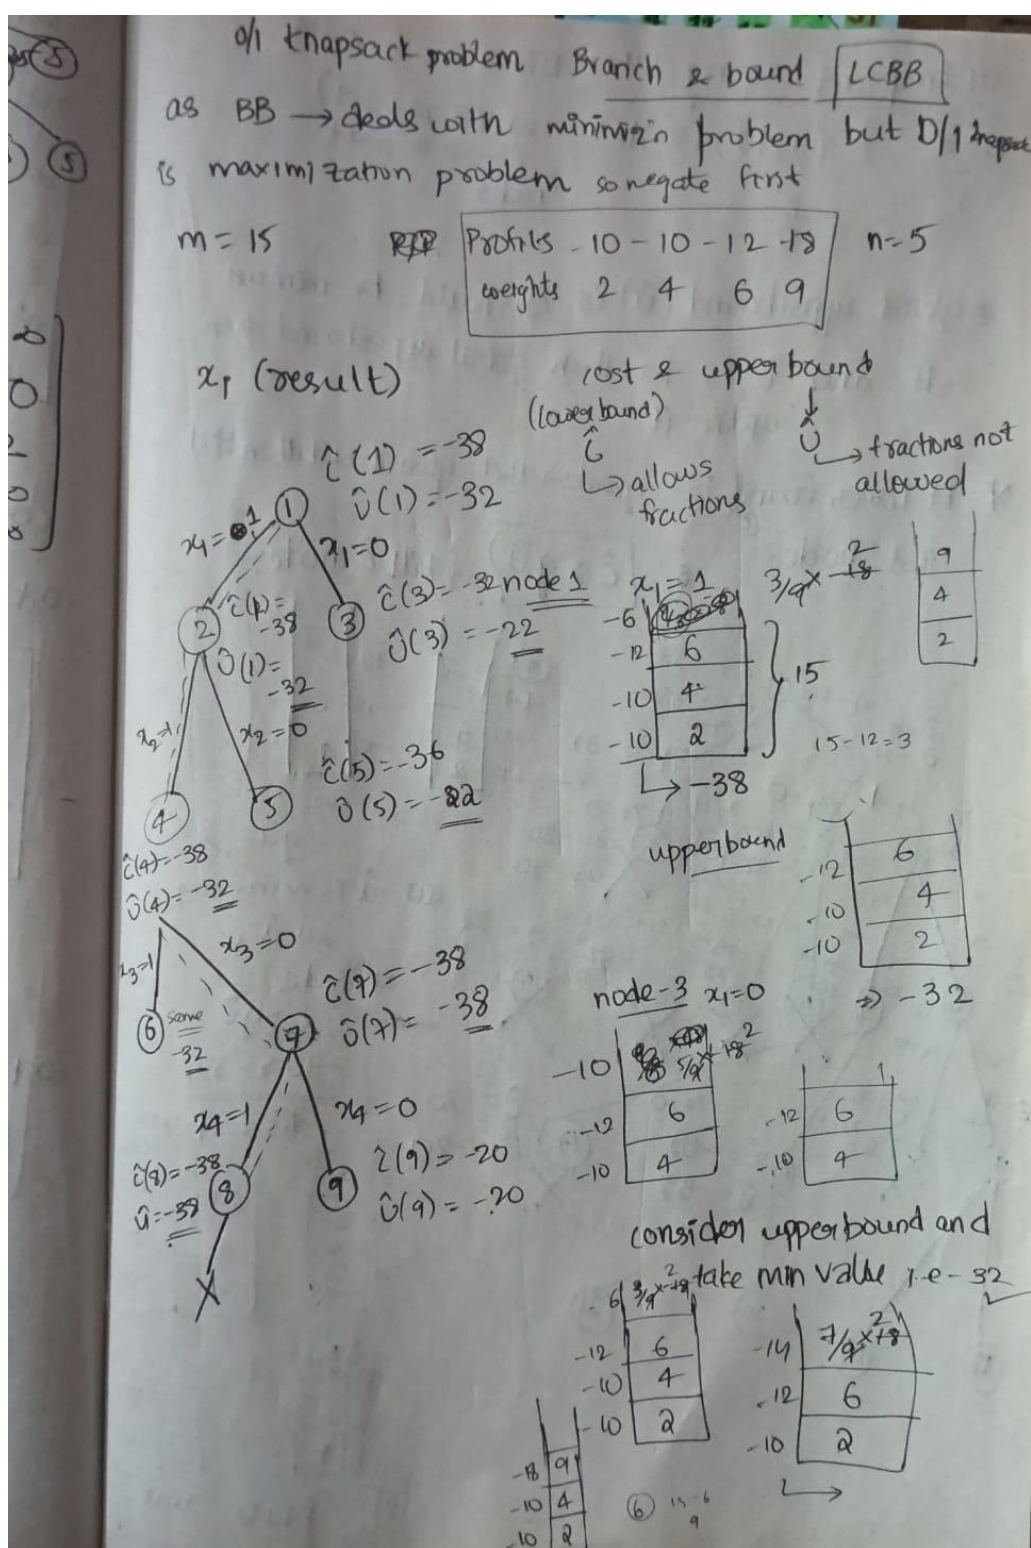 0/1 knapsack problem Branch & bound LCBB
as BB → deals with minimiz'n problem but 0/1 knapsack
is maximization problem so negate first
m = 15 Profits -10 -10 -12 -18 n=5
weights 2 4 6 9
x₁ (result) cost & upperbound
(lower bound) ↓
Ĉ Û
↳ allows fractions ↳ fractions not allowed
Ĉ(1) = -38
Û(1) = -32
1
x₁ = 1 x₁ = 0
2 Ĉ(1) = -38
Û(1) = -32
3 Ĉ(3) = -32
Û(3) = -22
x₂=1 x₂=0
4 5
Ĉ(5) = -36
Û(5) = -22
Ĉ(4) = -38
Û(4) = -32
x₃=1 x₃=0
6 same
-32
7 Ĉ(7) = -38
Û(7) = -38
x₄=1 x₄=0
Ĉ(8) = -38 8
Û = -38
9 Ĉ(9) = -20
Û(9) = -20
X
node 1 x₁ = 1 3/9 × -18 2
-6
-12 6
-10 4
-10 2
15
↳ → -38
9
4
2
15-12=3
upperbound
-12 6
-10 4
-10 2
⇒ -32
node-3 x₁=0
-10 5/9 × 18 2
-12 6
-10 4
-12 6
-10 4
consider upperbound and
take min value i.e -32
-6 3/9 × -18 2
-12 6
-10 4
-10 2
-14 7/9 × 18 2
-12 6
-10 2
-18 9
-10 4
-10 2
6 15-6
9